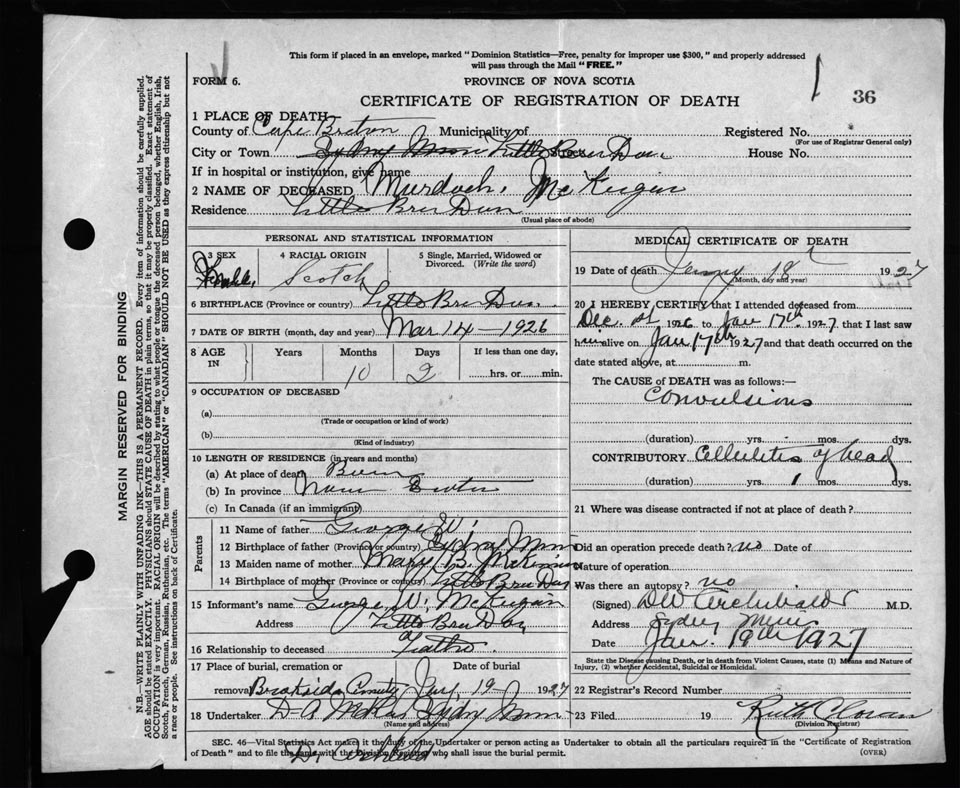 This form if placed in an envelope, marked "Dominion Statistics—Free, penalty for improper use $300," and properly addressed
will pass through the Mail "FREE."
FORM 6. PROVINCE OF NOVA SCOTIA
CERTIFICATE OF REGISTRATION OF DEATH 36
1 PLACE OF DEATH
County of Cape Breton Municipality of Registered No.
(For use of Registrar General only)
City or Town Sydney Mines Little Bras Dor House No.
If in hospital or institution, give name
2 NAME OF DECEASED Murdoch McKeigan
Residence Little Bras Dor
(Usual place of abode)
PERSONAL AND STATISTICAL INFORMATION
3 SEX 4 RACIAL ORIGIN 5 Single, Married, Widowed or Divorced. (Write the word)
Scotch
6 BIRTHPLACE (Province or country) Little Bras Dor
7 DATE OF BIRTH (month, day and year) Mar 14 — 1926
8 AGE IN Years Months Days If less than one day,
10 2 hrs. or min.
9 OCCUPATION OF DECEASED
(a)
(Trade or occupation or kind of work)
(b)
(Kind of industry)
10 LENGTH OF RESIDENCE (in years and months)
(a) At place of death Born
(b) In province Nova Scotia
(c) In Canada (if an immigrant)
Parents
11 Name of father George W.
12 Birthplace of father (Province or country) Sydney Mines
13 Maiden name of mother Mary B. McKinnon
14 Birthplace of mother (Province or country) Little Bras Dor
15 Informant's name George W. McKeigan
Address Little Bras Dor
16 Relationship to deceased Father
17 Place of burial, cremation or removal Date of burial
Brookside Jany 19 1927
18 Undertaker D A Sydney Mines
(Name and address)
MEDICAL CERTIFICATE OF DEATH
19 Date of death Jany 18 1927
(Month, day and year)
20 I HEREBY CERTIFY that I attended deceased from
Dec. 1st 1926 to Jan 17th 1927 that I last saw
him alive on Jan 17th 1927 and that death occurred on the
date stated above, at m.
The CAUSE of DEATH was as follows:—
Convulsions
(duration) yrs. mos. dys.
CONTRIBUTORY Cellulitis of head
(duration) yrs. 1 mos. dys.
21 Where was disease contracted if not at place of death?
Did an operation precede death? no Date of
Nature of operation
Was there an autopsy? no
(Signed) DW Archibald M.D.
Address Sydney Mines
Date Jan. 19th 1927
State the Disease causing Death, or in death from Violent Causes, state (1) Means and Nature of
Injury, (2) whether Accidental, Suicidal or Homicidal.
22 Registrar's Record Number
23 Filed 19 Ruth
(Division Registrar)
SEC. 46—Vital Statistics Act make it the duty of the Undertaker or person acting as Undertaker to obtain all the particulars required in the "Certificate of Registration
of Death" and to file the same with the Division Registrar who shall issue the burial permit. (OVER)
Dr. Archibald
MARGIN RESERVED FOR BINDING
N.B.—WRITE PLAINLY WITH UNFADING INK—THIS IS A PERMANENT RECORD. Every item of information should be carefully supplied.
AGE should be stated EXACTLY. PHYSICIANS should STATE CAUSE OF DEATH in plain terms, so that it may be properly classified. Exact statement of
OCCUPATION is very important. RACIAL ORIGIN will be described by stating to what people or tongue the deceased person belonged, whether English, Irish,
Scotch, French, German, Russian, Ruthenian, etc. The terms "AMERICAN" or "CANADIAN" SHOULD NOT BE USED as they express citizenship but not
a race or people. See instructions on back of Certificate.